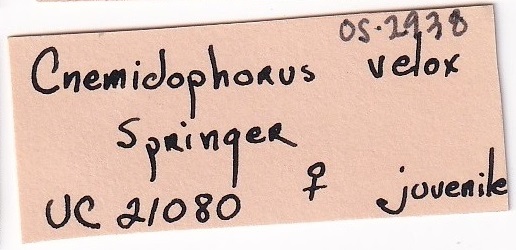 OS·2938
Cnemidophorus velox
Springer
UC 21080 ♀ juvenile